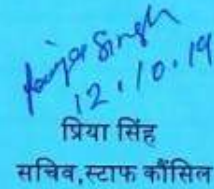 Singh
12.10.19
प्रिया सिंह
सचिव,स्टाफ कौंसिल